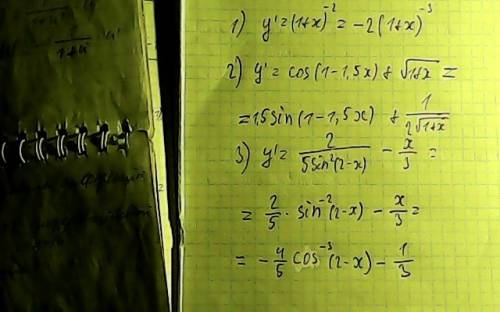 1) y'=(1+x)^-2 = -2(1+x)^-3
2) y'= cos(1-1,5x) + √(1+x) =
= 1,5sin(1-1,5x) + 1/(2√(1+x))
3) y'= 2/(5sin²(2-x)) - x/3 =
= 2/5 · sin^-2(2-x) - x/3 =
= -4/5 cos^-3(2-x) - 1/3